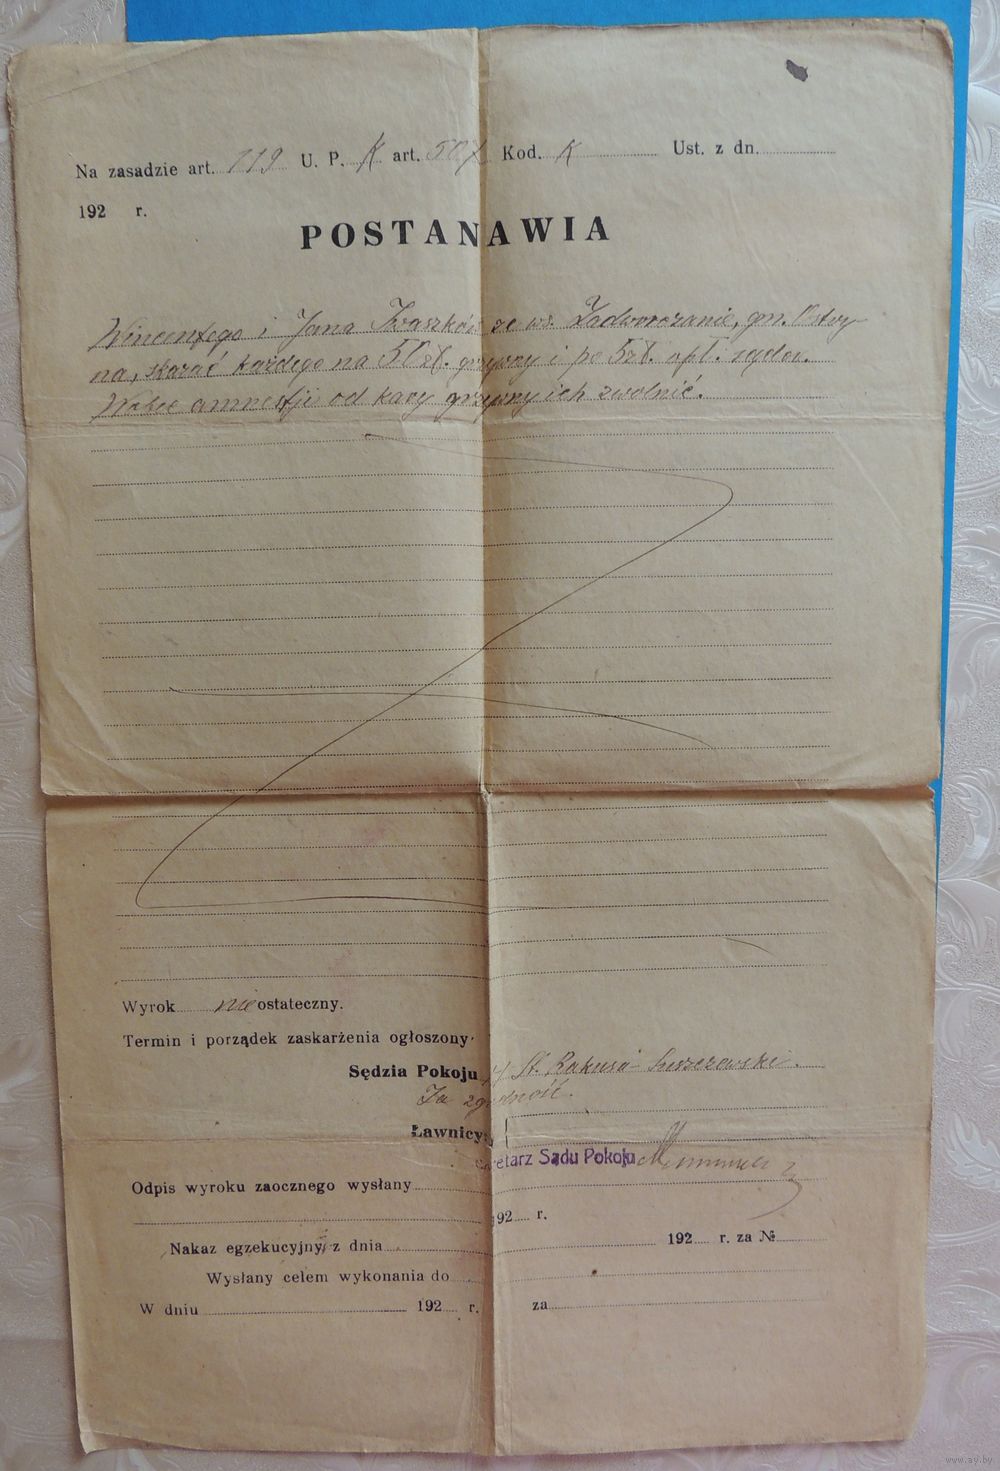 Na zasadzie art. 119 U. P. K art. 507 Kod. K Ust. z dn.
192 r.
POSTANAWIA
Wincentego i Jana Iwaszków ze ws. Zadworzanie, gm. Ostry-
na, skazać każdego na 50 zł. grzywny i po 5 zł. opł. sądow.
Wobec amnestji od kary grzywny ich zwolnić.
Wyrok nieostateczny.
Termin i porządek zaskarżenia ogłoszony
Sędzia Pokoju /-/ St. Rakusa-Suszczewski.
Za zgodność.
Ławnicy:
Sekretarz Sądu Pokoju
Odpis wyroku zaocznego wysłany
192 r.
Nakaz egzekucyjny z dnia 192 r. za №
Wysłany celem wykonania do
W dniu 192 r. za
www.ay.by